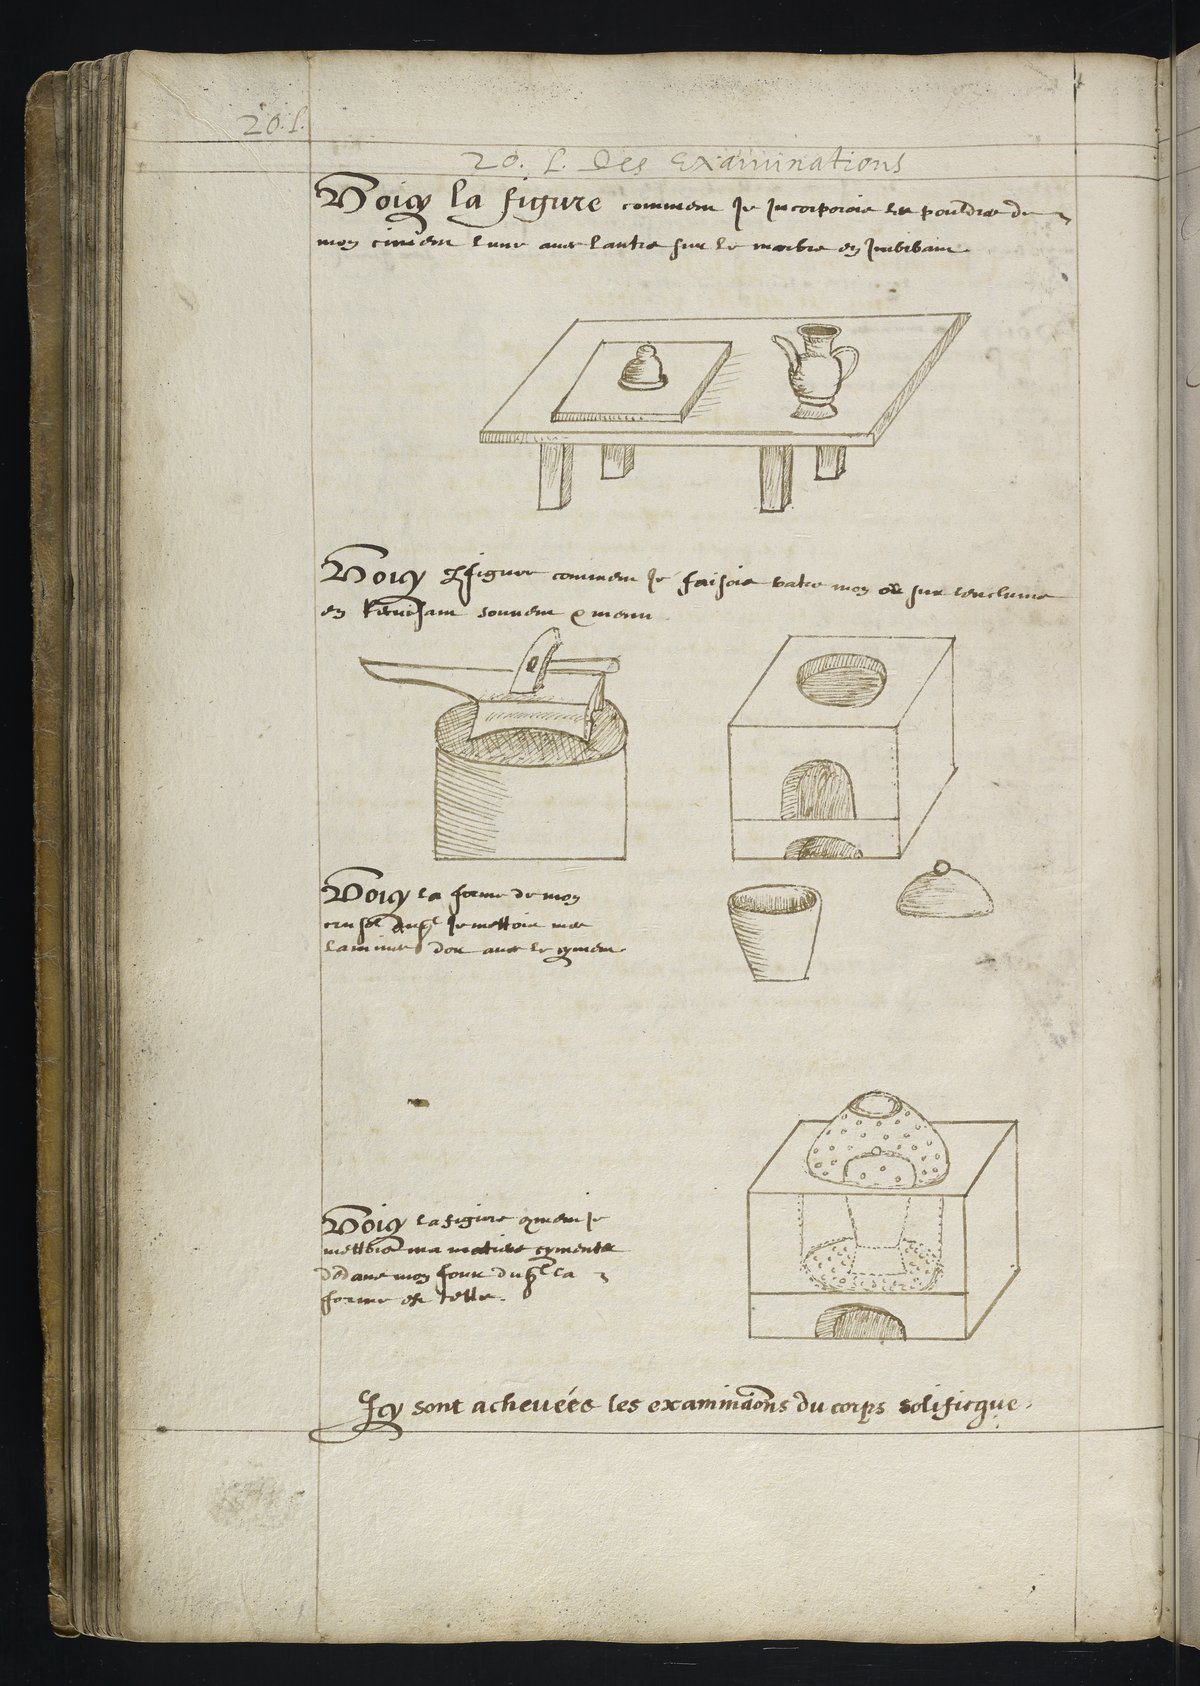 20. L.
20. L. Des Examinations
Voicy la figure comment Je Incorporois les pouldres de
mon ciment lune avec lautre sur le marbre en Imbibant
Voicy figure comment Je faisois batre mon or sur lenclume
en souvent & menu
Voicy la forme de mon
Je mettois mes
lamines dor avec le cyment
Voicy la figure Je
mettois ma matiere
dedans mon four duql la
forme est telle.
Icy sont acheuées les examinaõns du corps solificque.